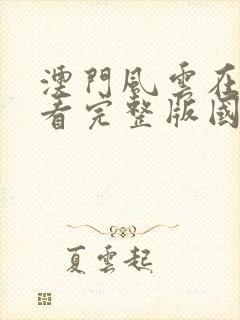 澳門風雲在
看完整版國
夏雲起